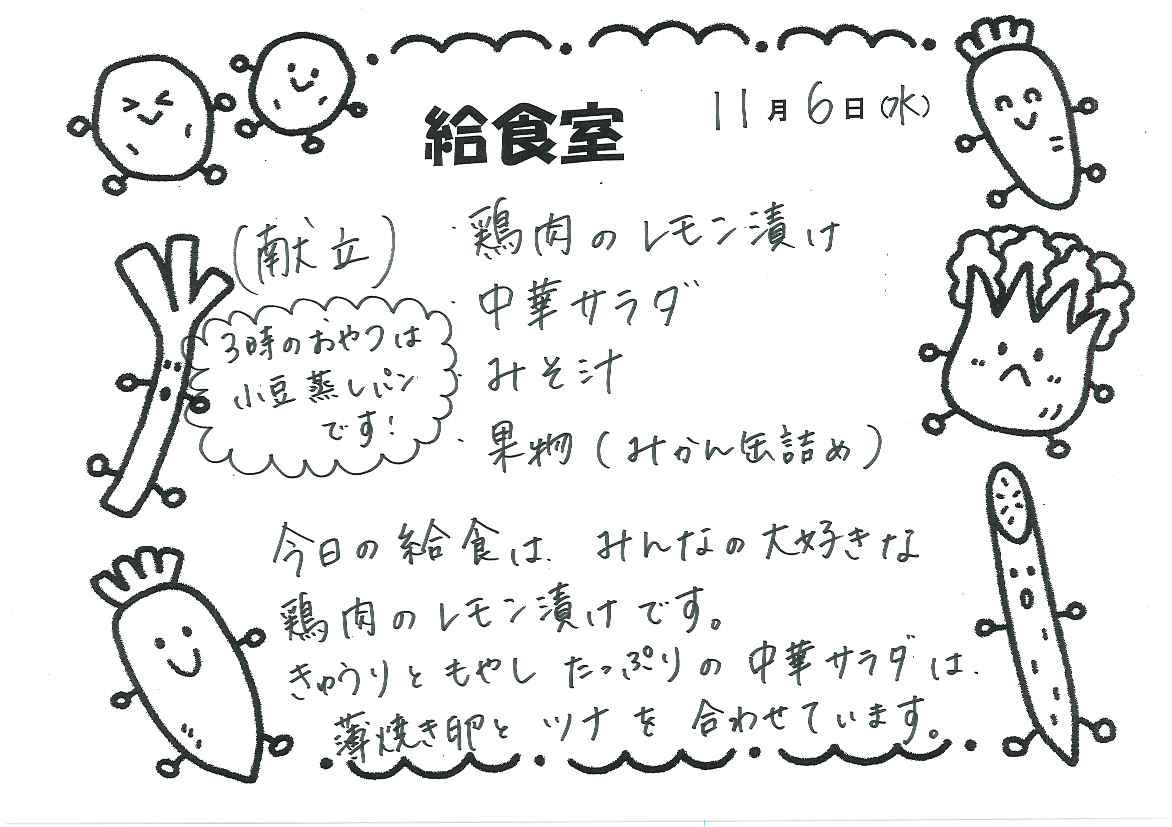 給食室
11月6日(水)
(献立)
・鶏肉のレモン漬け
・中華サラダ
・みそ汁
・果物(みかん缶詰め)
3時のおやつは
小豆蒸しパン
です!
今日の給食は、みんなの大好きな
鶏肉のレモン漬けです。
きゅうりともやしたっぷりの中華サラダは、
薄焼き卵とツナを合わせています。